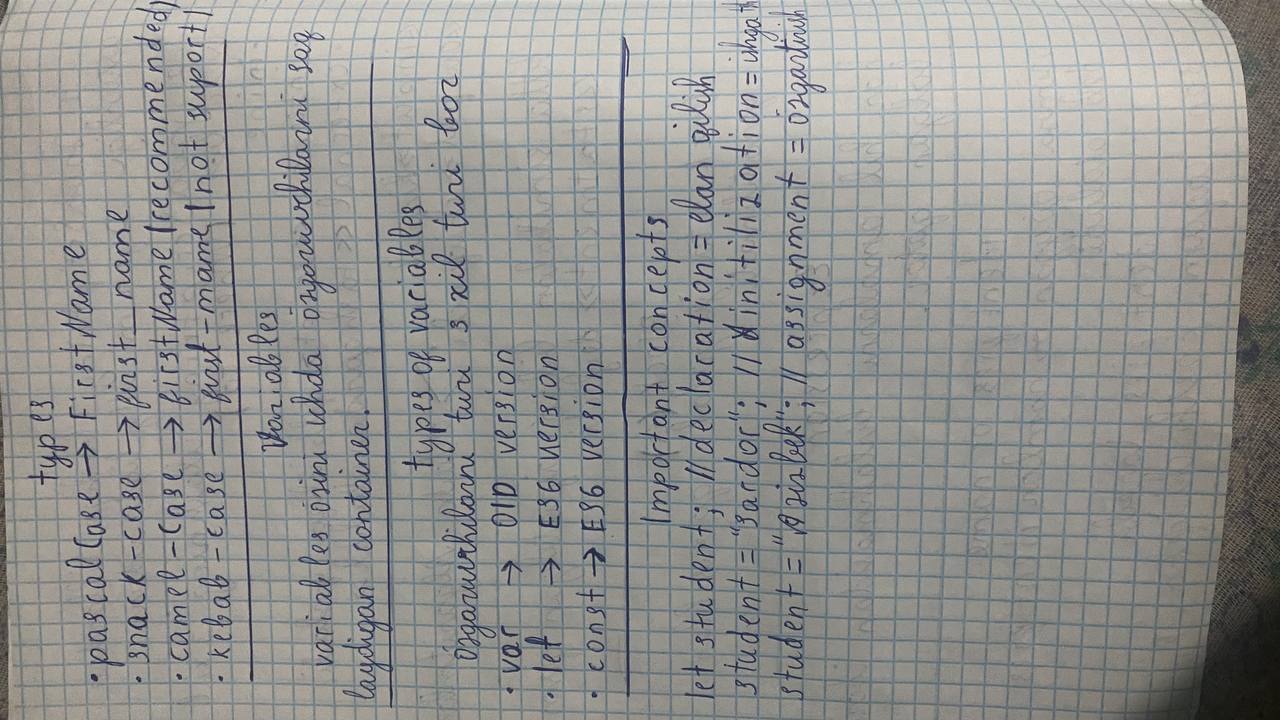 types
• pascalCase → FirstName
• snack-case → first_name
• camel-case → firstName (recommended)
• kebab-case → first-name (not suport)
Variables
variables ózini ichida ózgaruvchilarni saq
laydigan container.
types of variables
ózgaruvchilarni turi 3 xil turi bor
• var → OlD version
• let → ES6 version
• const → ES6 version
Important concepts
let student; // declaration = elan qilish
student = "Sardor"; // initilization =
student = "Azizbek"; // assignment = ózgartirish